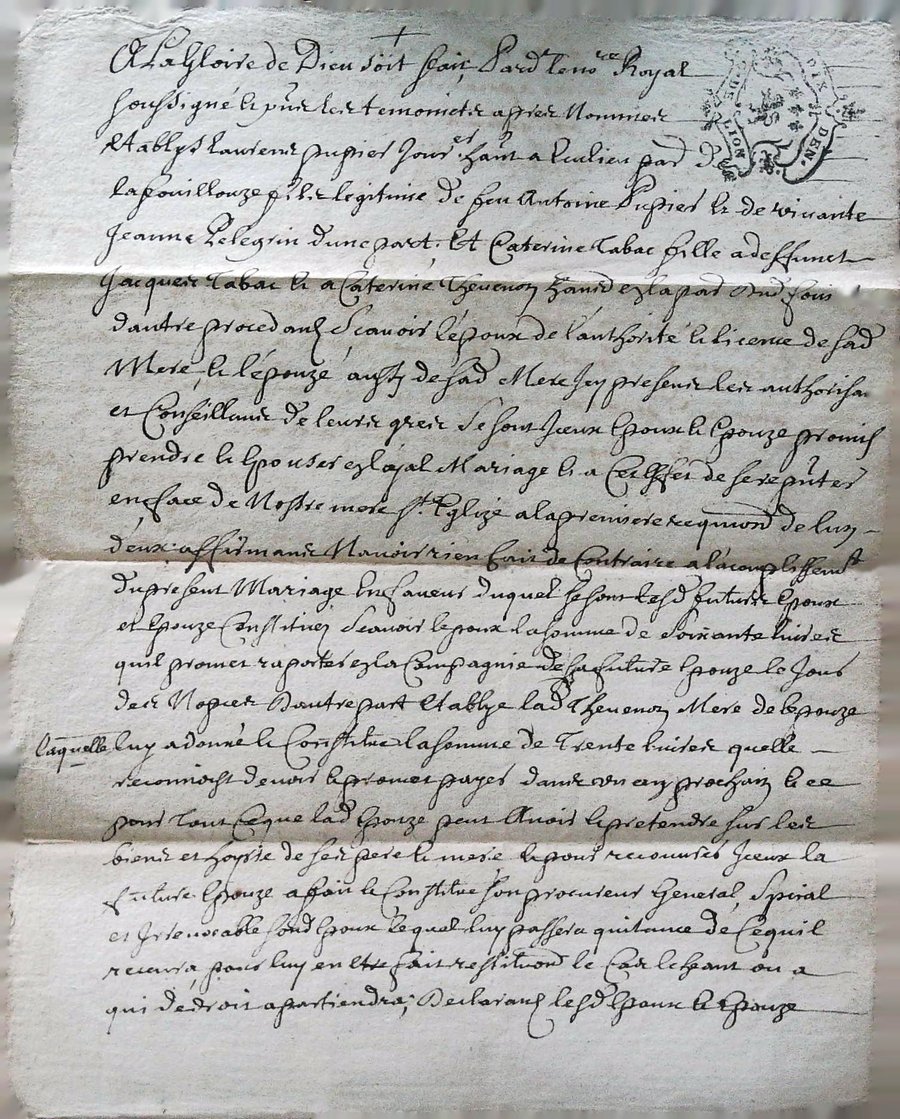 A La Gloire de Dieu soit faict Pard^t le no^re Royal
soussigné et p^nts les temoins apres Nommes
Establys Laurens pupier Jour^er hant a
DE LION
DIX DEN.
lafouillouze fils legitime de feu Antoine Pupier et de vivante
Jeanne Pelegrin d'une part, Et Caterine Tabac fille a deffunct
Jacques Tabac et a Caterine Thevenon
d'autre procedant Scavoir l'epoux de l'authorité et licence de sad
Mere, et l'épouze aussy de sad Mere Icy presens les authorisa
et Conseillant de leurs grez Se sont Iceux Epoux et Epouze promis
prendre et Epouser en loyal Mariage et a Cest effet de se repnter
en face de Nostre mere S^te Eglize a la premiere requiond de l'un
d'eux affirmant N'avoir rien fait de Contraire a l'acomplissem^t
du present Mariage En faveur duquel se sont lesd futurs Epoux
et Epouze Constitués Scavoir lepoux la somme de Soixante livres
quil promet raporter en la Compagnie de sa future Epouze le Jour
des Nopces D'autre part Establye lad Thevenon Mere de lepouze
laquelle luy a donné et Constitue la somme de Trente livres quelle
reconnoist devoir et promet payer dans un an prochain et ce
pour Tout Ce que lad Epouze peut Avoir et pretendre sur les
biens et hoyrie de ses pere et mere et pour recouvrer Iceux la
future Epouze a fait et Constitue son procureur General, Spécial
et Irrevocable sond Epoux Lequel luy passera quitance de Cequil
recevra, pour luy en Etre fait restitutiond le Cas Echeant ou a
qui de droit apartiendra; Declarant lesd Epoux et Epouze